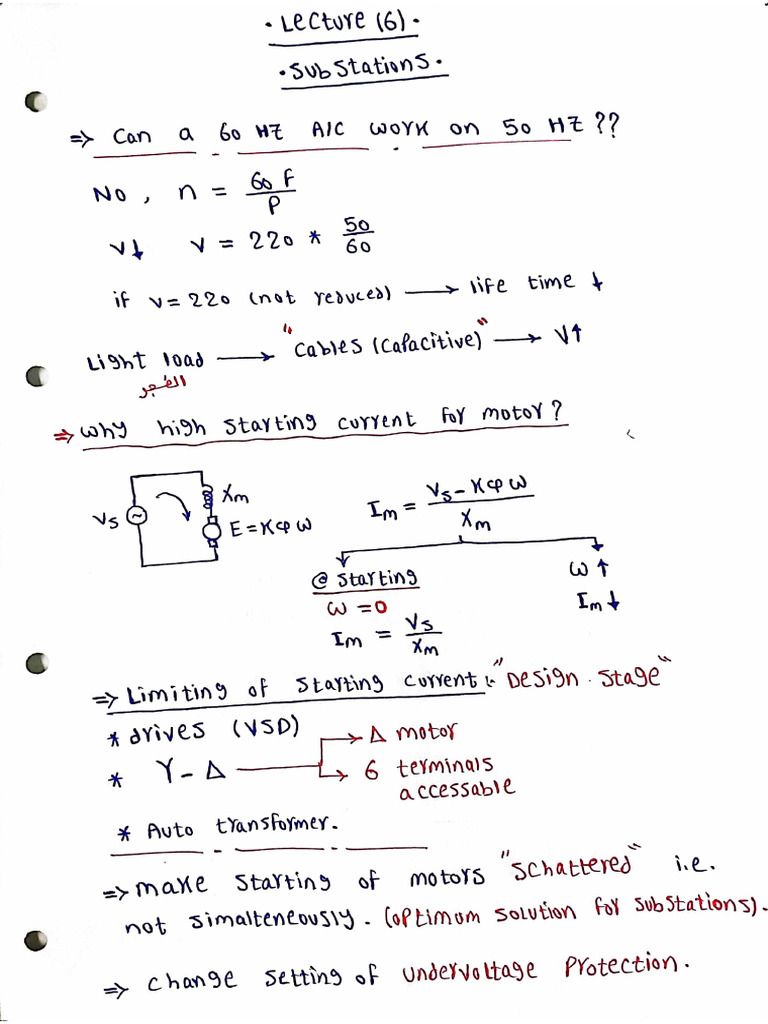 • Lecture (6) •
• SubStations •
⇒ Can a 60 HZ A/C work on 50 HZ ??
No , n = 60 F / P
V↓ V = 220 * 50 / 60
if V = 220 (not reduced) → life time ↓
Light load → "Cables (Capacitive)" → V↑
الفجر
⇒ Why high starting current for motor?
Vs Xm E = Kφω
Im = Vs - Kφω / Xm
@ Starting
ω = 0
Im = Vs / Xm
ω ↑
Im ↓
⇒ Limiting of Starting current :- "Design Stage"
* drives (VSD)
* Y - Δ → Δ motor
→ 6 terminals
accessable
* Auto transformer.
⇒ make starting of motors "Schattered" i.e.
not simalteneously. (optimum solution for substations).
⇒ Change setting of Undervoltage Protection.